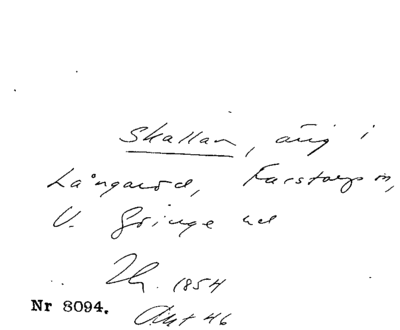 Skallan, äng i
Långaröd, Farstorps sn,
V. Göinge hd
Zh. 1854
Nr 8094.
Akt 46